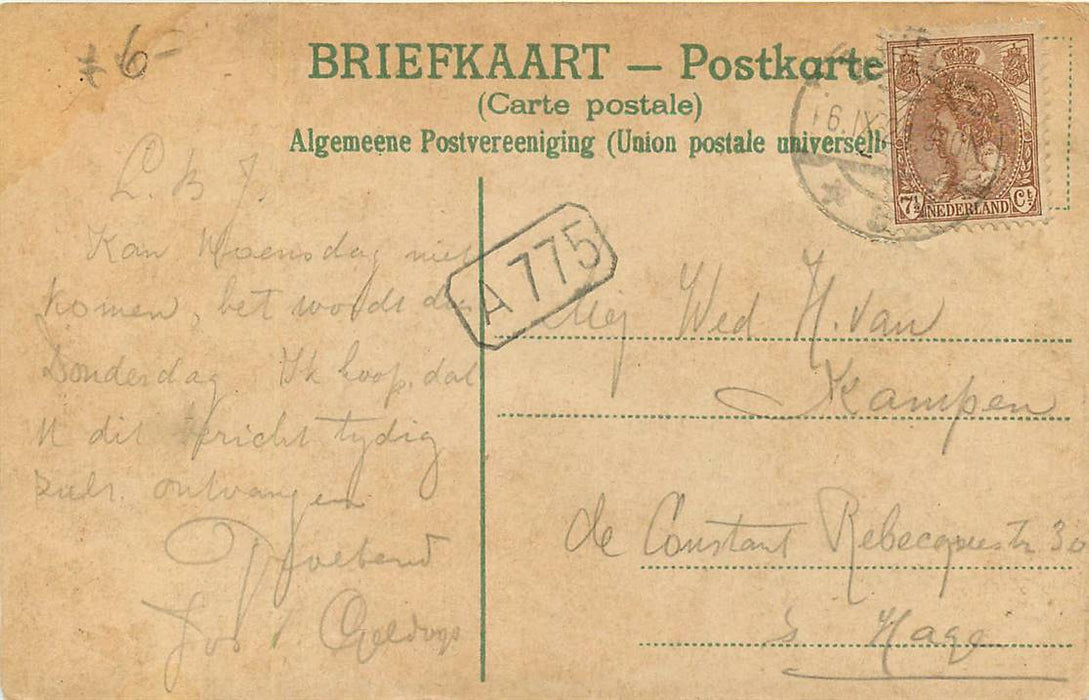 6-
BRIEFKAART — Postkarte
(Carte postale)
Algemeene Postvereeniging (Union postale universelle
7½ NEDERLAND Ct
A 775
L. B J.
Kan Woensdag niet
komen, het wordt dus
Donderdag. Ik hoop, dat
U dit bericht tydig
zult ontvangen
Mej Wed H. van
Kampen
de Constant Rebecquestr 30
s Hage